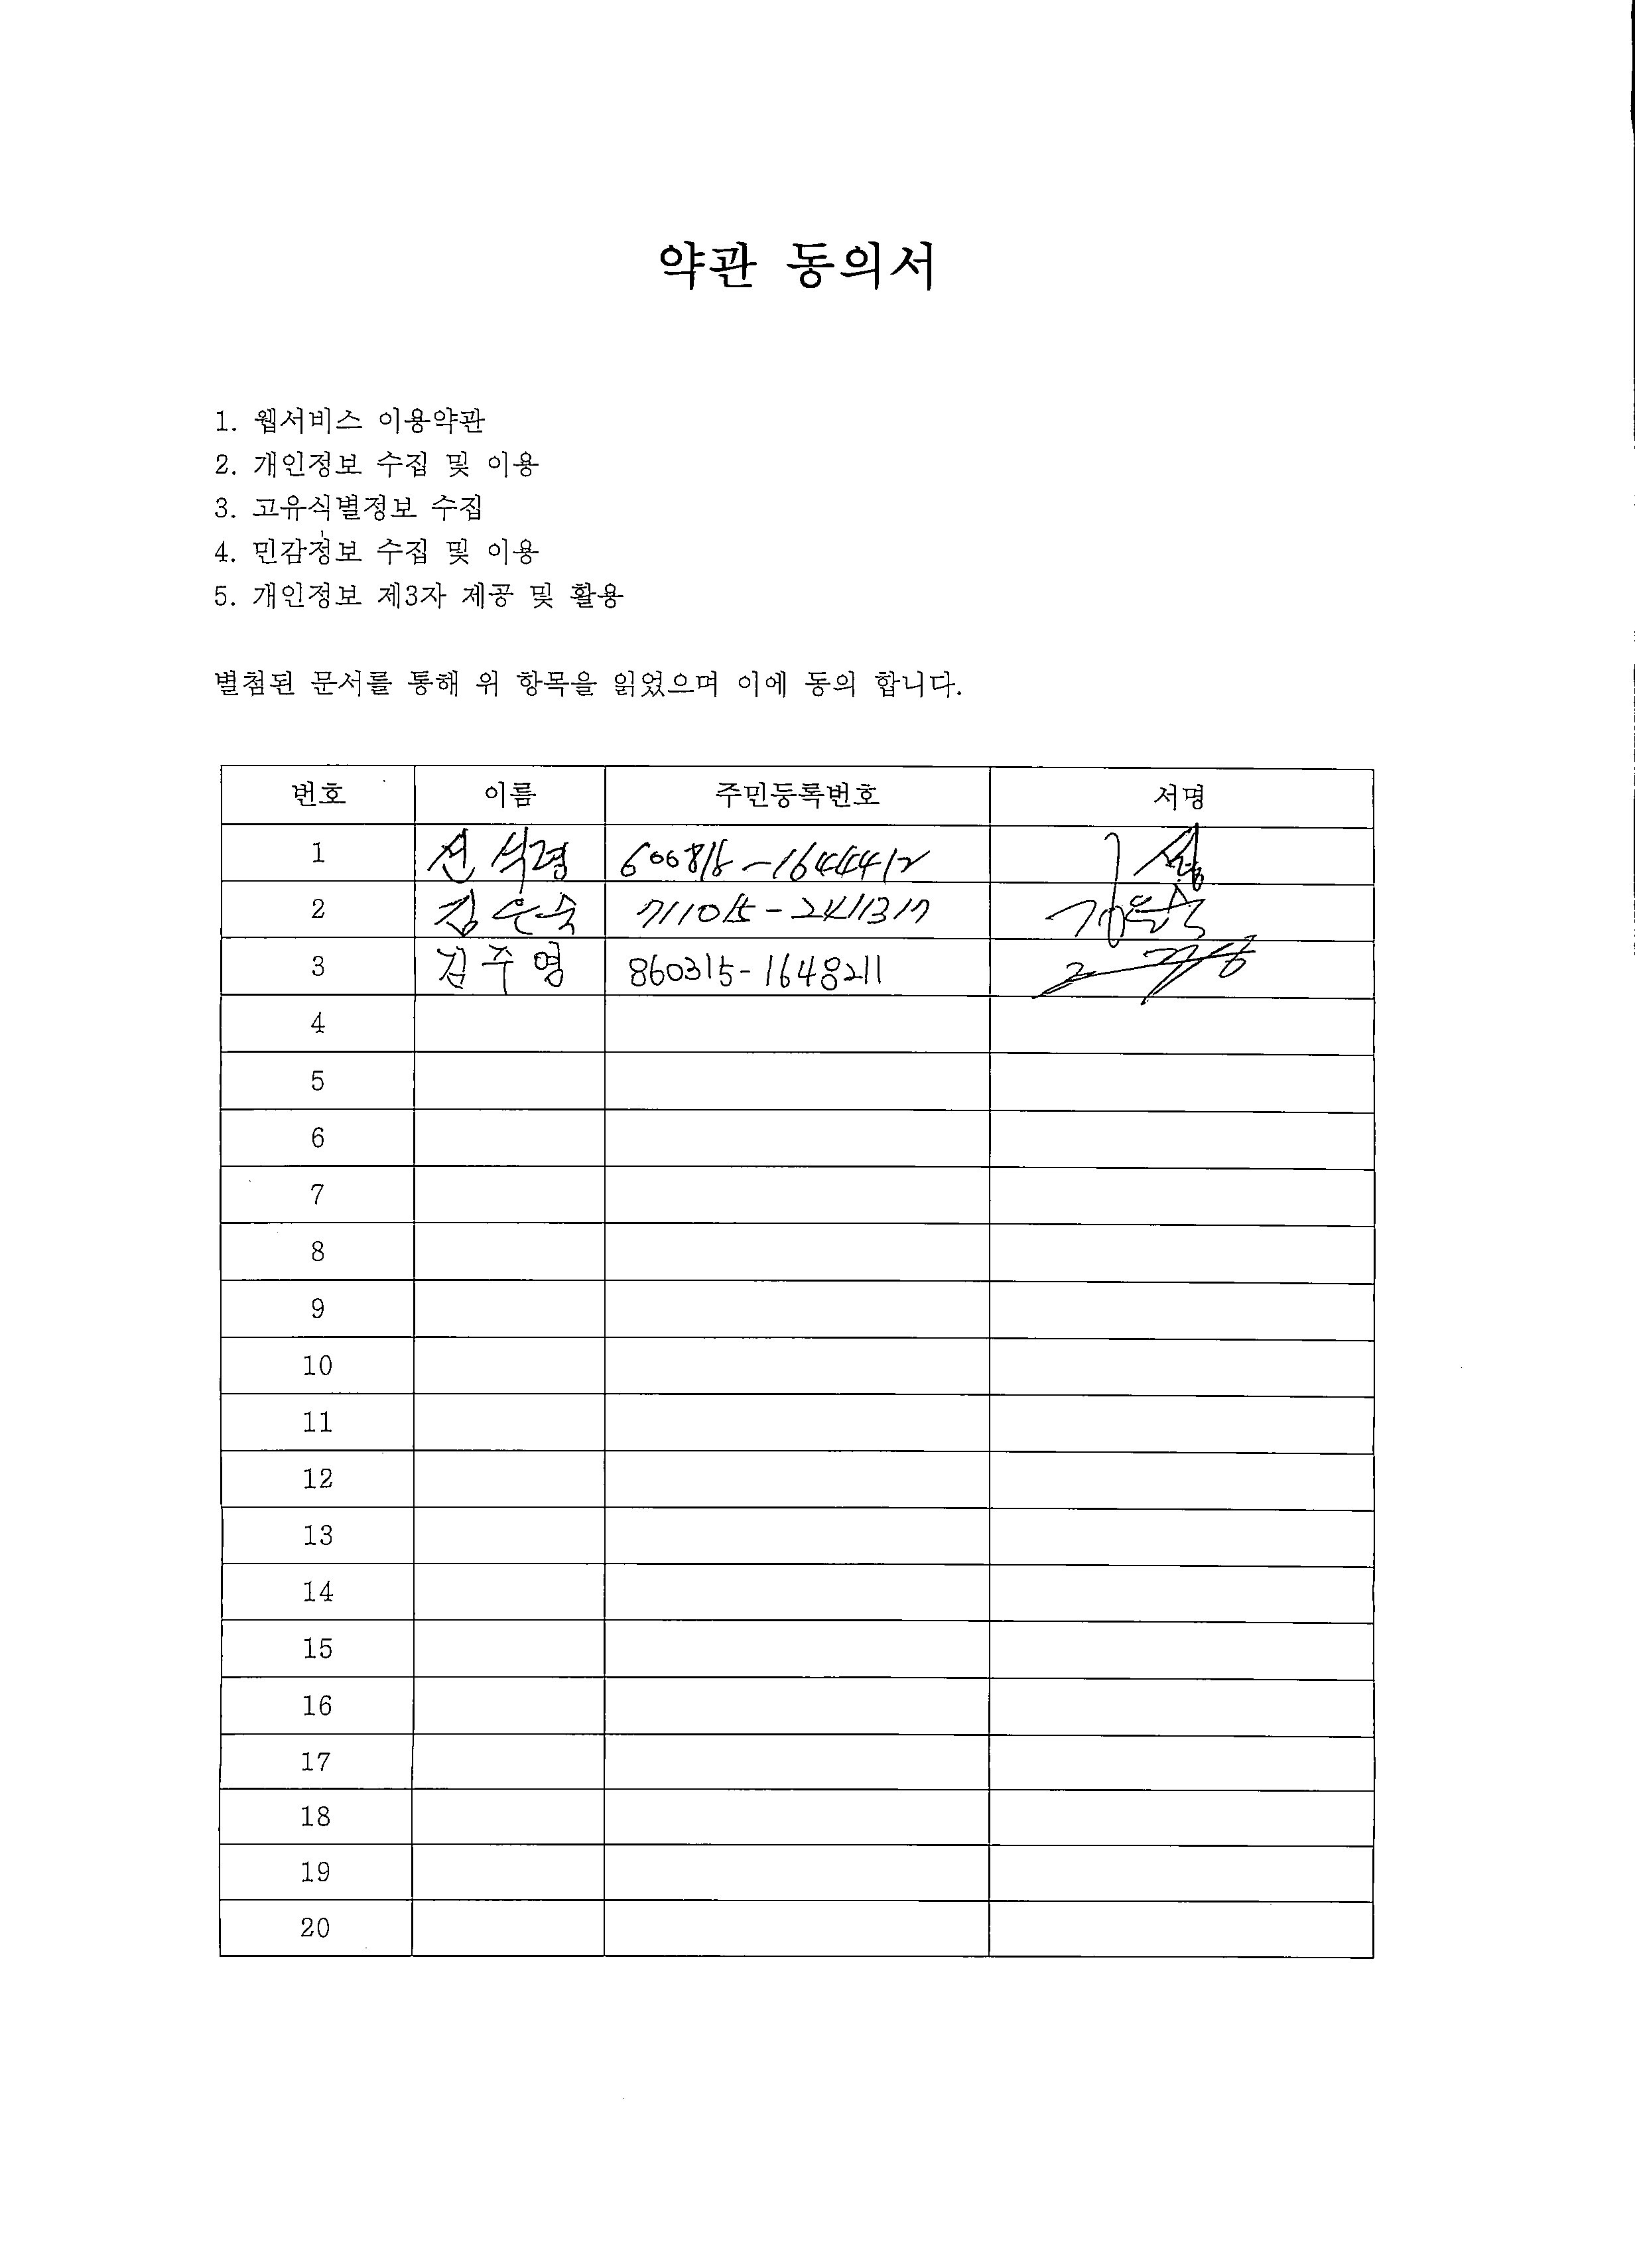 약관 동의서
1. 웹서비스 이용약관
2. 개인정보 수집 및 이용
3. 고유식별정보 수집
4. 민감정보 수집 및 이용
5. 개인정보 제3자 제공 및 활용
별첨된 문서를 통해 위 항목을 읽었으며 이에 동의 합니다.
번호 이름 주민등록번호 서명
1 석령 600815-1644412
2 김은숙 711015-2411317 김은숙
3 김주영 860315-1648211
4
5
6
7
8
9
10
11
12
13
14
15
16
17
18
19
20